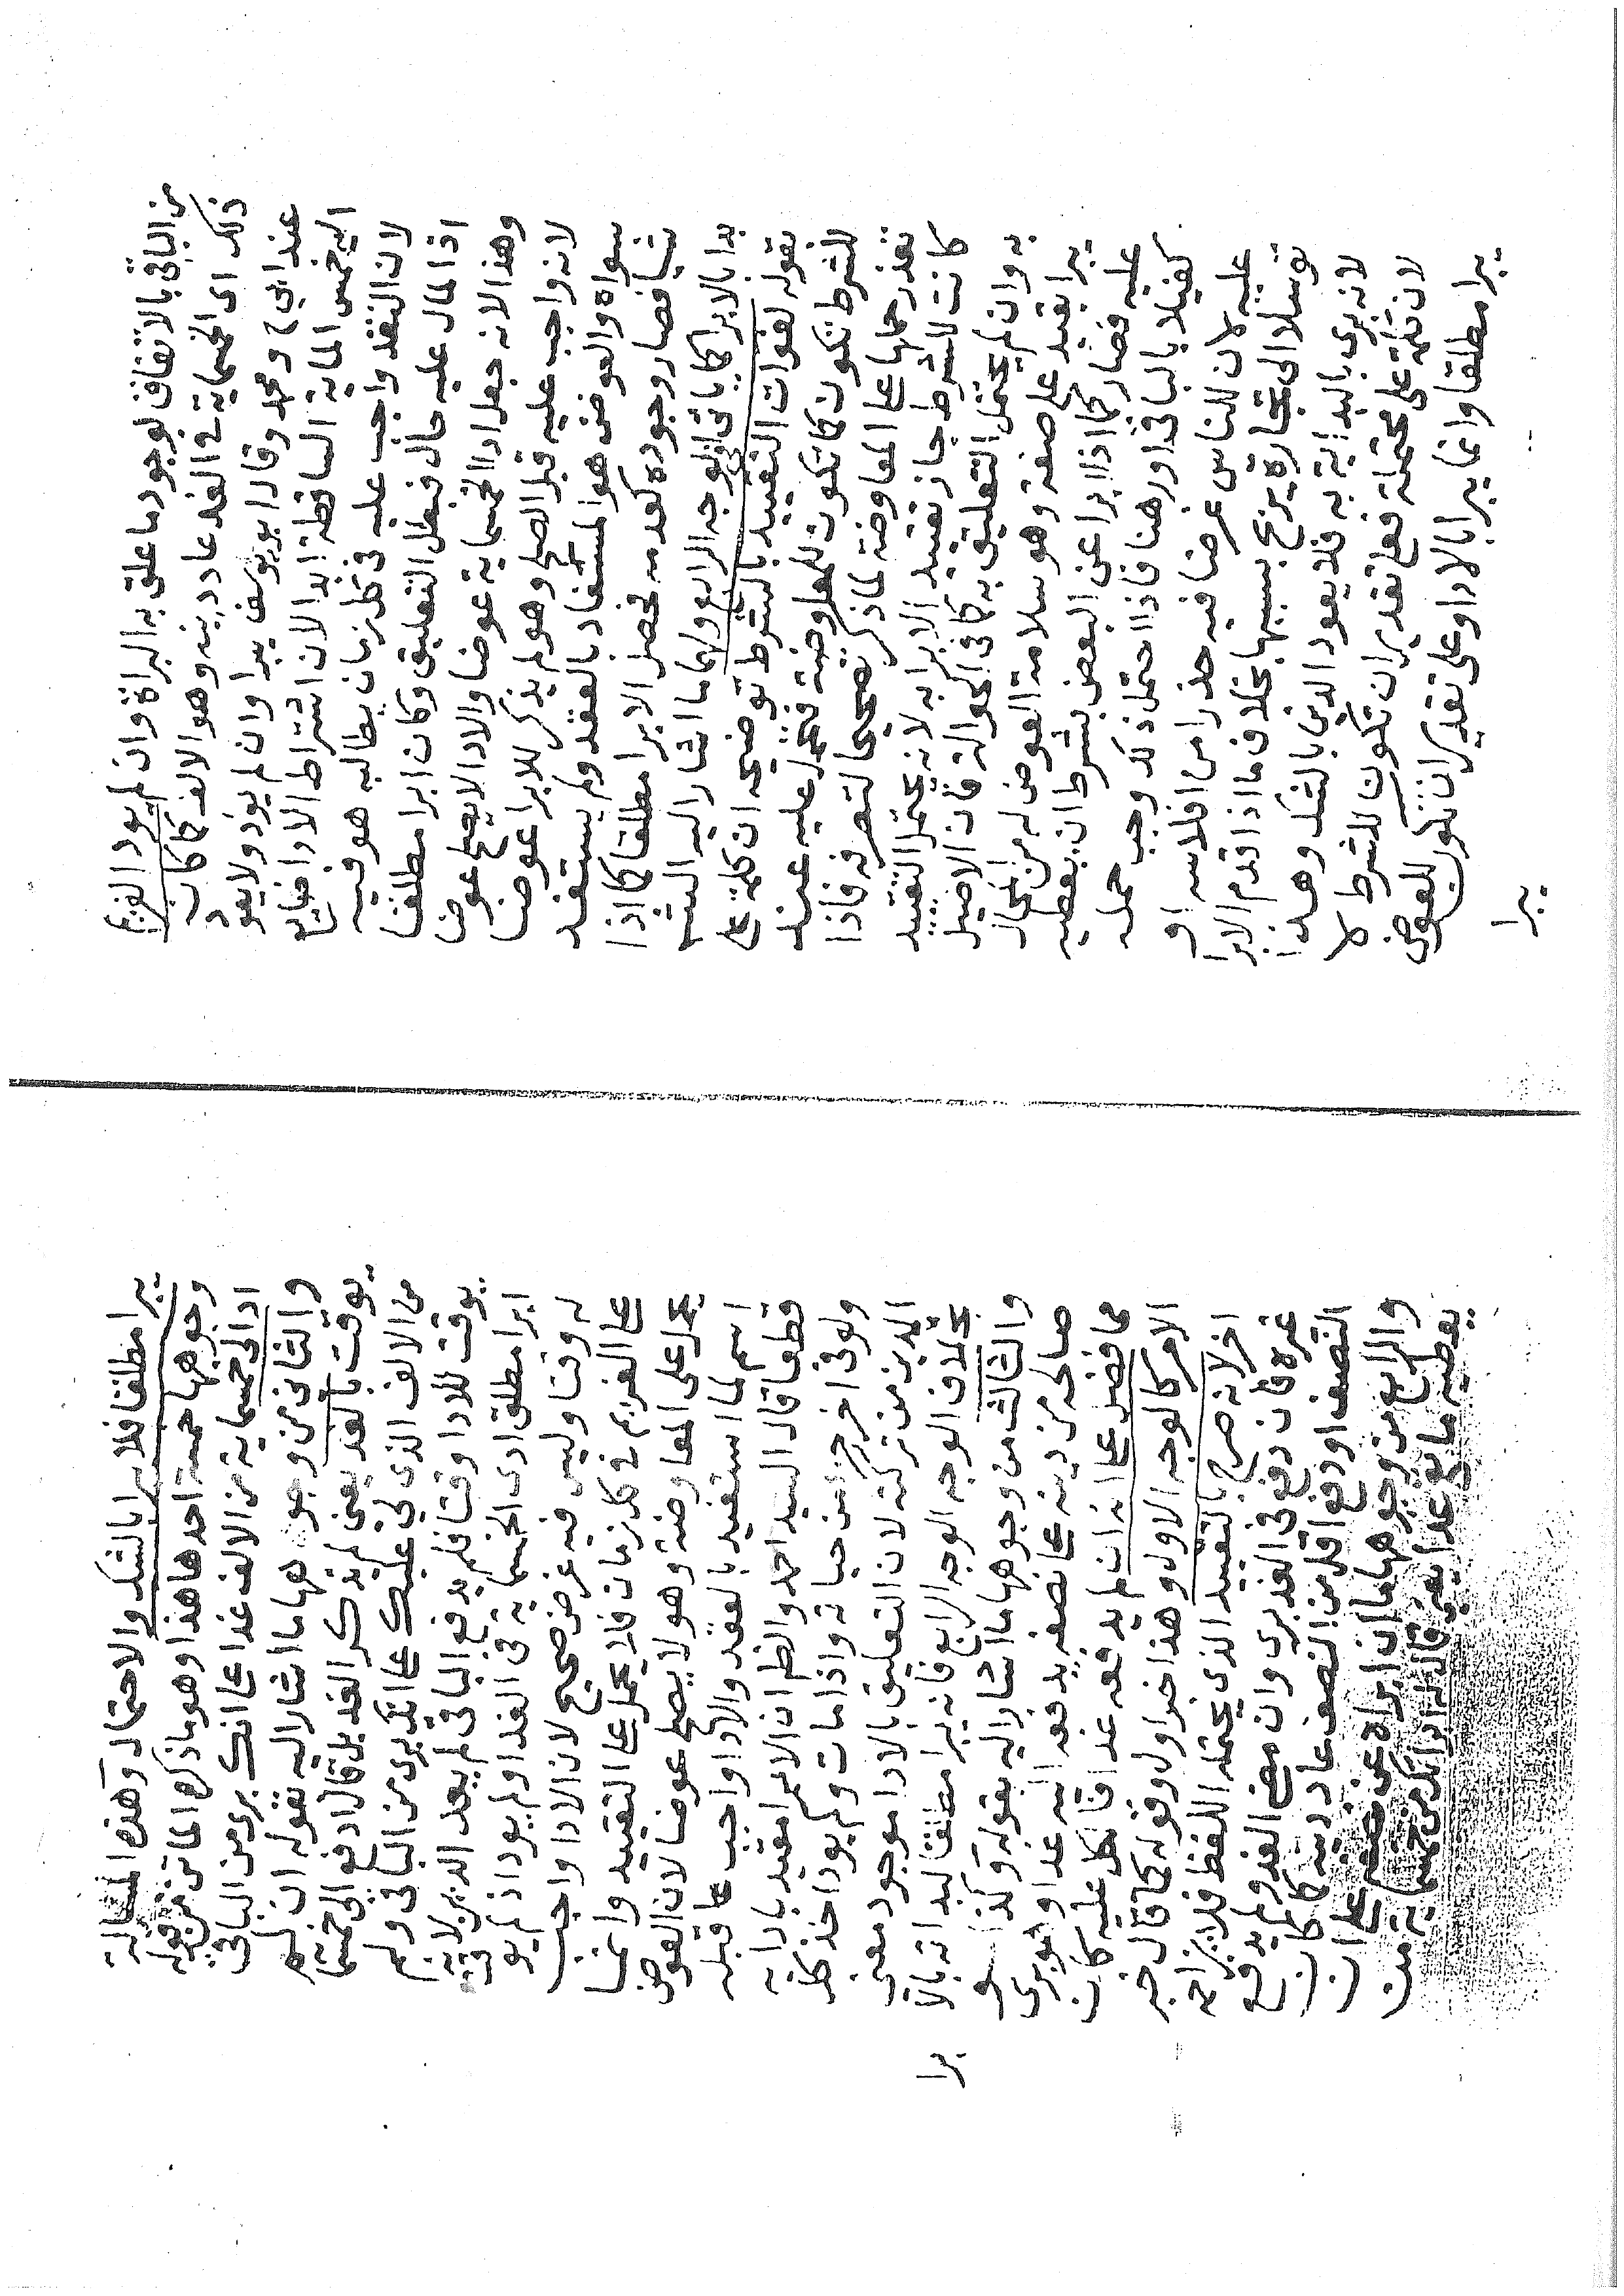 من الباقى بالاتفاق لوجود ما علق به البراة وان لم يود الغريم
ذلك اى الخمسماية فى الغد عاد دينه وهو الالف كما كان
عند ابى ح ومحمد وقال ابو يوسف يبرا وان لم يود ولا يعود
اليه خمس الماية الساقطة ابدا لان اشتراط الادا ضايع
لان النقد واجب عليه فى كل زمان يطالبه هو فيه
اذا المال عليه حال فبطل التعليق وكان ابرا مطلقا
وهذا لانه جعل ادا الخمسماية عوضا والادا لا يصح عوضا
لانه واجب عليه قبل الصلح وهو لم يذكر للابرا عوضا
سواه والعوض هو المستفاد بالعقد ولم يستفد
شيا فصار وجوده كعدمه فحصل الابرا مطلقا كما اذا
بدا بالابرا كما ياتى فى الوجه الرابع ولهما ما اشار اليه الشيخ
بقوله لفوات التقييد بالشرط توضيحه ان كلمة على
للشرط تكون كما تكون للمعاوضة فيحمل عليه عند
تعذر حملها على المعاوضة لما ذكر تصحيحا لتصرفه فاذا
كانت للشرط جاز تقييد الابرا به لانه يحتمل التقييد
به وان لم يحتمل التعليق به كما فى الحوالة فان الاصيل
يبرا بقيد على صفة وهو سلامة العوض له من المحال
عليه فصار كما اذا ابرا عن البعض بشرط ان يعطيه
كفيلا بالباقى او رهنا فاذا احتمل ذلك وجب حمله
عليه لان للناس غرضا فيه حذرا من افلاسه او
توسلا الى تجارة يربح بسببها بخلاف ما اذا قدم الابرا
لانه برى بالبداية به فلا يعود الدين بالشك وهذا
لان كلمة على محتملة فعلى تقدير ان تكون للشرط لا
يبرا مطلقا وانما يبرا بالادا وعلى تقدير ان تكون للعوض
يبرا
يبرا مطلقا فلا يبرا بالشك والاحتمال وهذه المسالة
وجوهها خمسة احدها هذا وهو ما ذكره الماتن بقوله
ادا لى خمسماية من الالف غدا على انك برى من الباقى
والثانى من وجوهها ما اشار اليه بقوله ان لم
يوقت بالغد يعنى لم يذكر الغد بل قال ادفع الى خمسماية
من الالف الذى لى عليك على انك برى من الباقى ولم
يوقت للادا وقتا فلم يدفع الباقى لم يعد الدين لانه
ابرا مطلق ادى الخمسماية فى الغد او لم يود اذ لم يوقت
له وقتا وليس فيه غرض صحيح لان الادا واجب
على الغريم فى كل زمان فلا يحمل على التقييد وانما
يحمل على المعاوضة وهو لا يصلح عوضا لان العوض
اسم لما استفيد بالعقد والادا واجب عليه قبله
قطعا قال السيد احمد والظ ان الابرا مقيد بادايه
ولو فى اخر جز من حياته واذا مات ولم يود اخذ كل
الدين من تركته لان التعليق بالادا موجود معنى
بخلاف الوجه الرابع فانه يبرا مطلقا لبداته بالابرا
والثالث من وجوهها ما اشار اليه بقوله وكذا لو
صالحه من دينه على نصفه يدفعه اليه غدا وهو برى
مما فضل على انه ان لم يدفعه غدا فالكل عليه كان
الامر كالوجه الاول وهذا خبر اول وقوله كما قال خبر
اخر لانه صرح بالتقييد الذى يحتمله اللفظ فلا يزاحمه
غيره فان دفع فى الغد برى وان مضى الغد ولم يدفع
النصف او دفع اقل من النصف عاد دينه كما كان
والرابع من وجوهها ما ان ابراه عن نصفه على ان
يعطيه ما بقى غدا يعنى قال له ابراتك من خمسماية من